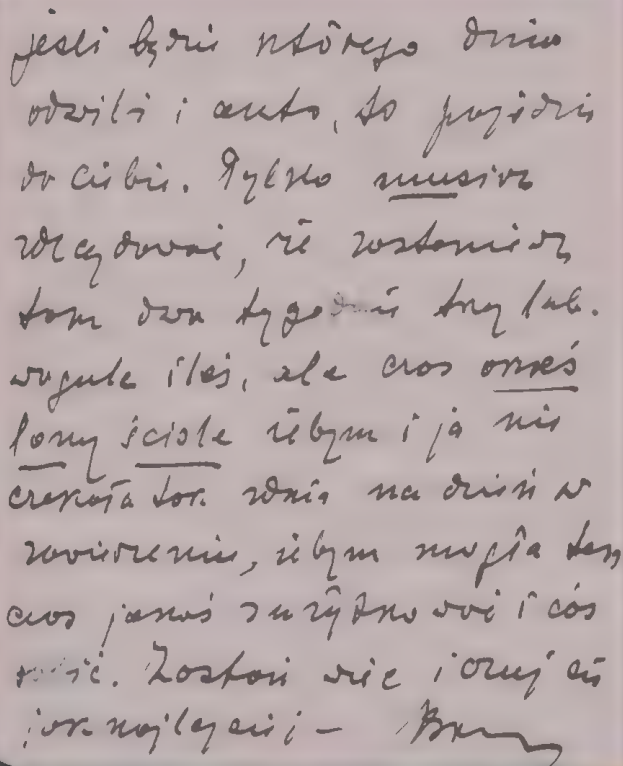 jeśli będzie którego dnia
odwilż i auto, to pojedzie
do Ciebie. Tylko musisz
zdecydować, że zostaniesz
tam dwa tygodnie trzy lub
wogule ileś, ale czas okreś
lony ściśle żebym i ja nie
czekała tak z dnia na dzień w
zawieszeniu, żebym mogła ten
czas jakoś zużytkować i coś
robić. Zostań więc i czuj się
jak najlepiej –